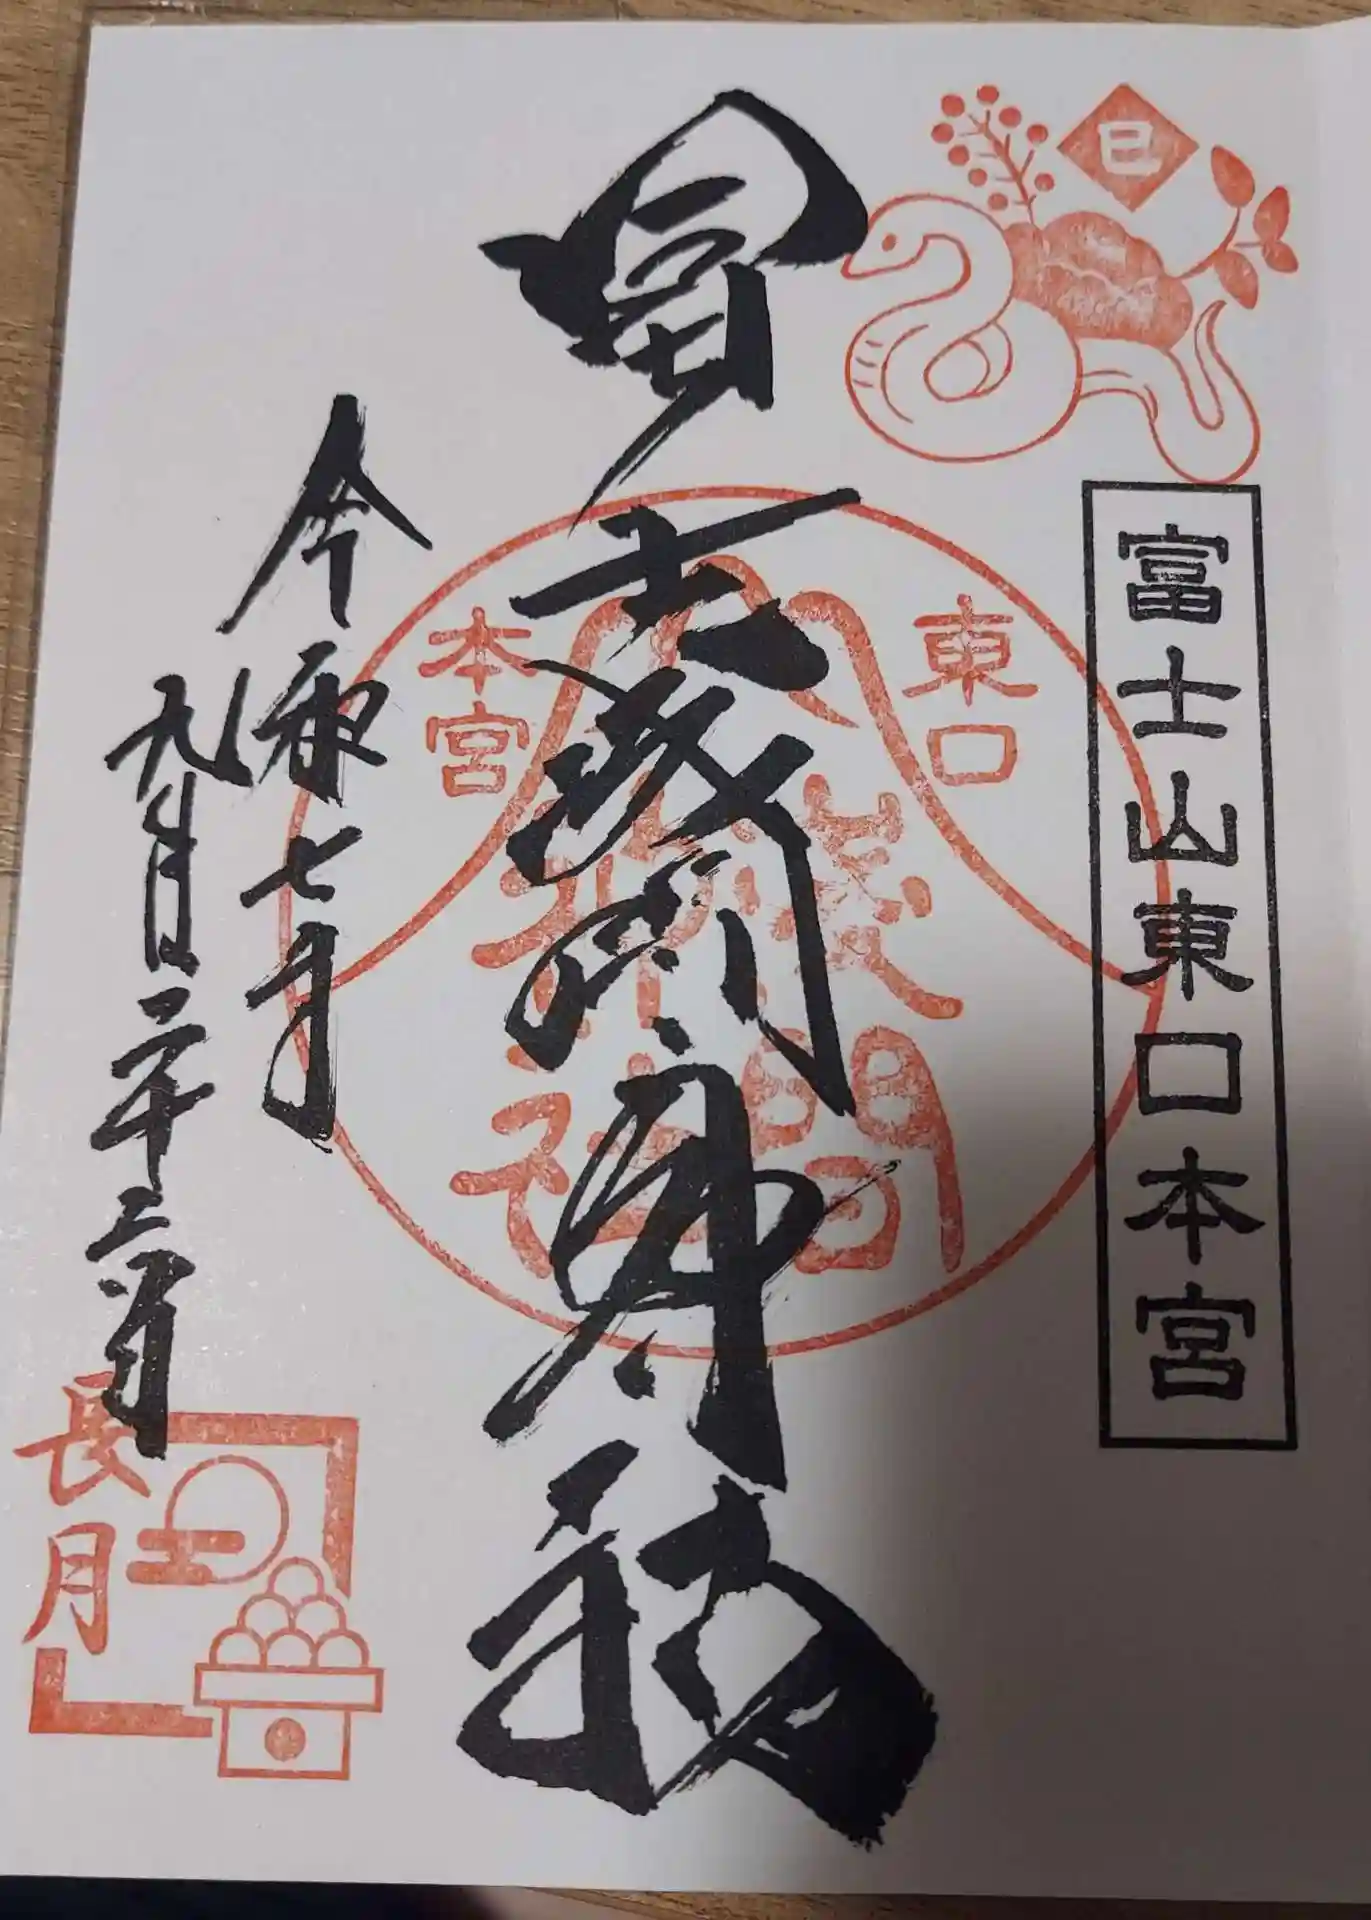 巳
富士山東口本宮
冨士浅間神社
東口
本宮
浅間
神社
令和七年
九月二十三日
長月